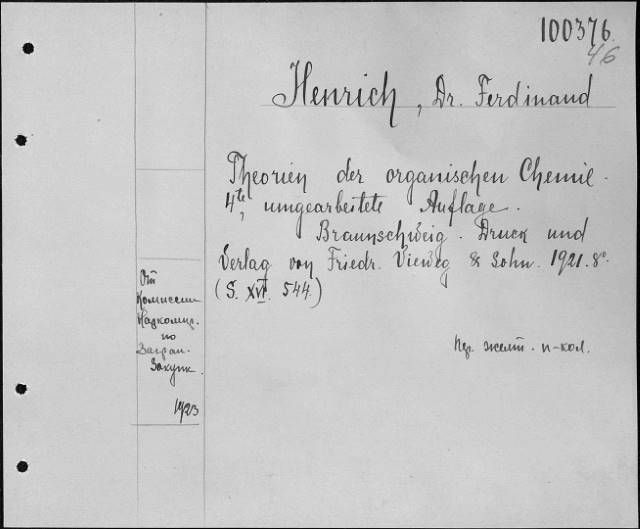 100376.
46
Henrich, Dr. Ferdinand
Theorien der organischen Chemie.
4te, umgearbeitete Auflage.
Braunschweig. Druck und
Verlag von Friedr. Vieweg & Sohn. 1921. 8º.
(S. XVI. 544.)
От
Комиссии
Наркомпр.
по
Загран.
Закупк.
1923
Пер. желт. п-кол.